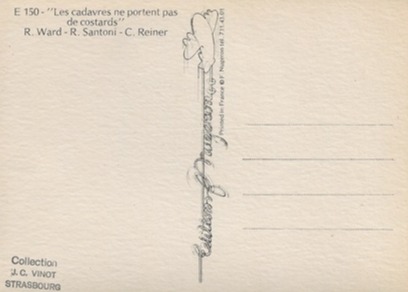 E 150 - "Les cadavres ne portent pas
de costards"
R. Ward - R. Santoni - C. Reiner
Editions F. Nugeron
Printed in France © F. Nugeron tel. 771.41.01
Collection
J.C. VINOT
STRASBOURG